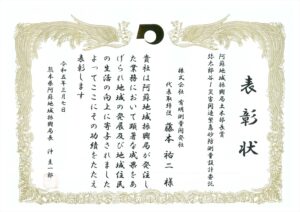 表彰状
阿蘇地域振興局土木部長賞
弥太郎谷1災害関連緊急砂防測量設計委託
株式会社 有明測量開発社
代表取締役 藤本祐二 様
貴社は阿蘇地域振興局が発注し
た業務において顕著な成果をあ
げられ地域の発展及び地域住民
の生活の向上に寄与されました
よってここにその功績をたたえ
表彰します
令和五年三月七日
熊本県阿蘇地域振興局長 沖圭一郎